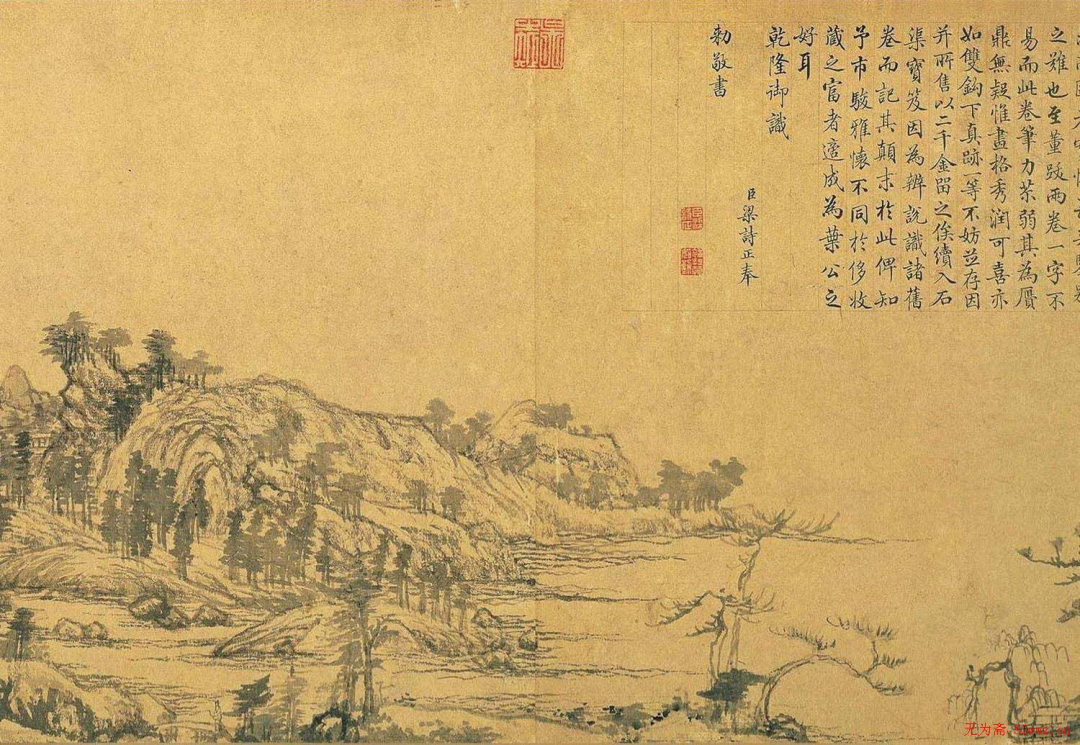 之難也至董跋兩卷一字不
易而此卷筆力苶弱其為贗
鼎無疑惟畫格秀潤可喜亦
如雙鈎下真跡一等不妨並存因
并所售以二千金留之俟續入石
渠寶笈因為辨說識諸舊
卷而記其顛末於此俾知
予市駿雅懷不同於侈收
藏之富者適成為葉公之
好耳
乾隆御識
臣梁詩正奉
勅敬書
无为斋